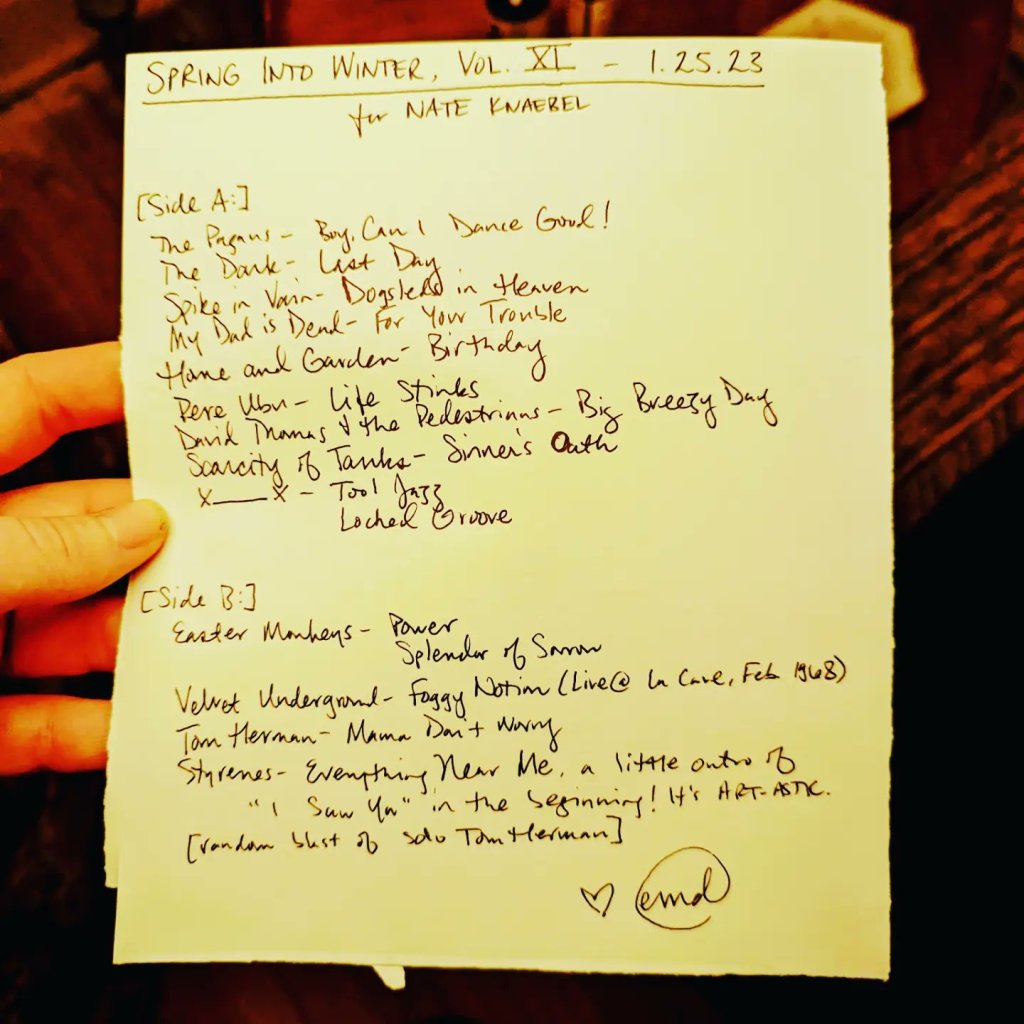 SPRING INTO WINTER, VOL. XI - 1.25.23
for NATE KNAEBEL
[Side A:]
The Pagans - Boy, Can I Dance Good!
The Dark - Last Day
Spike in Vain - Dogsled in Heaven
My Dad is Dead - For Your Trouble
Home and Garden - Birthday
Pere Ubu - Life Stinks
David Thomas & the Pedestrians - Big Breezy Day
Scarcity of Tanks - Sinner's Oath
X___X - Tool Jazz
Locked Groove
[Side B:]
Easter Monkeys - Power
Splendor of Sorrow
Velvet Underground - Foggy Notion (Live @ La Cave, Feb 1968)
Tom Herman - Mama Don't Worry
Styrenes - Everything Near Me, a little outro of
"I Saw You" in the beginning! It's ART-ASTIC.
[random blast of solo Tom Herman]
♡ emd